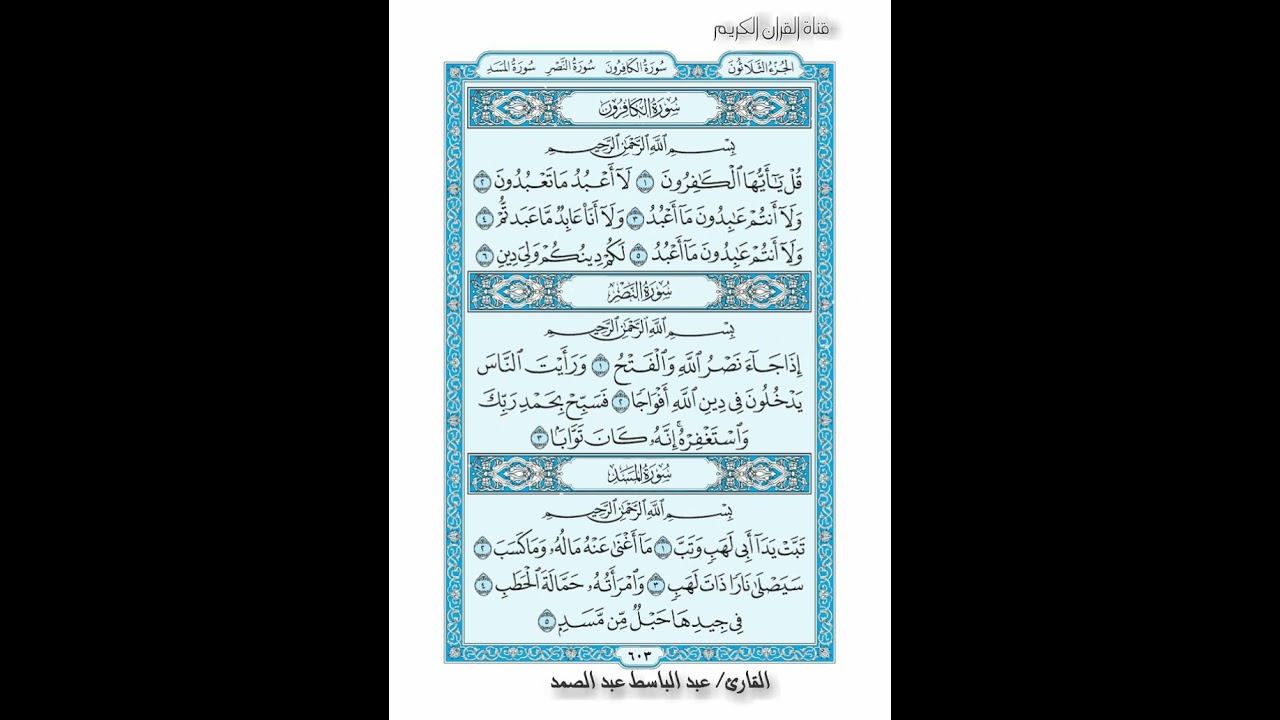 قناة القران الكريم
الجُزْءُ الثَّلَاثُونَ سُورَةُ الكَافِرُونَ سُورَةُ النَّصْرِ سُورَةُ المَسَدِ
سُورَةُ الكَافِرُونَ
بِسْمِ ٱللَّهِ ٱلرَّحْمَٰنِ ٱلرَّحِيمِ
قُلْ يَٰٓأَيُّهَا ٱلْكَٰفِرُونَ ١ لَآ أَعْبُدُ مَا تَعْبُدُونَ ٢
وَلَآ أَنتُمْ عَٰبِدُونَ مَآ أَعْبُدُ ٣ وَلَآ أَنَا۠ عَابِدٌ مَّا عَبَدتُّمْ ٤
وَلَآ أَنتُمْ عَٰبِدُونَ مَآ أَعْبُدُ ٥ لَكُمْ دِينُكُمْ وَلِيَ دِينِ ٦
سُورَةُ النَّصْرِ
بِسْمِ ٱللَّهِ ٱلرَّحْمَٰنِ ٱلرَّحِيمِ
إِذَا جَآءَ نَصْرُ ٱللَّهِ وَٱلْفَتْحُ ١ وَرَأَيْتَ ٱلنَّاسَ
يَدْخُلُونَ فِي دِينِ ٱللَّهِ أَفْوَاجًا ٢ فَسَبِّحْ بِحَمْدِ رَبِّكَ
وَٱسْتَغْفِرْهُۚ إِنَّهُۥ كَانَ تَوَّابًۢا ٣
سُورَةُ المَسَدِ
بِسْمِ ٱللَّهِ ٱلرَّحْمَٰنِ ٱلرَّحِيمِ
تَبَّتْ يَدَآ أَبِي لَهَبٍ وَتَبَّ ١ مَآ أَغْنَىٰ عَنْهُ مَالُهُۥ وَمَا كَسَبَ ٢
سَيَصْلَىٰ نَارًا ذَاتَ لَهَبٍ ٣ وَٱمْرَأَتُهُۥ حَمَّالَةَ ٱلْحَطَبِ ٤
فِي جِيدِهَا حَبْلٌ مِّن مَّسَدٍۭ ٥
٦٠٣
القارئ/ عبد الباسط عبد الصمد